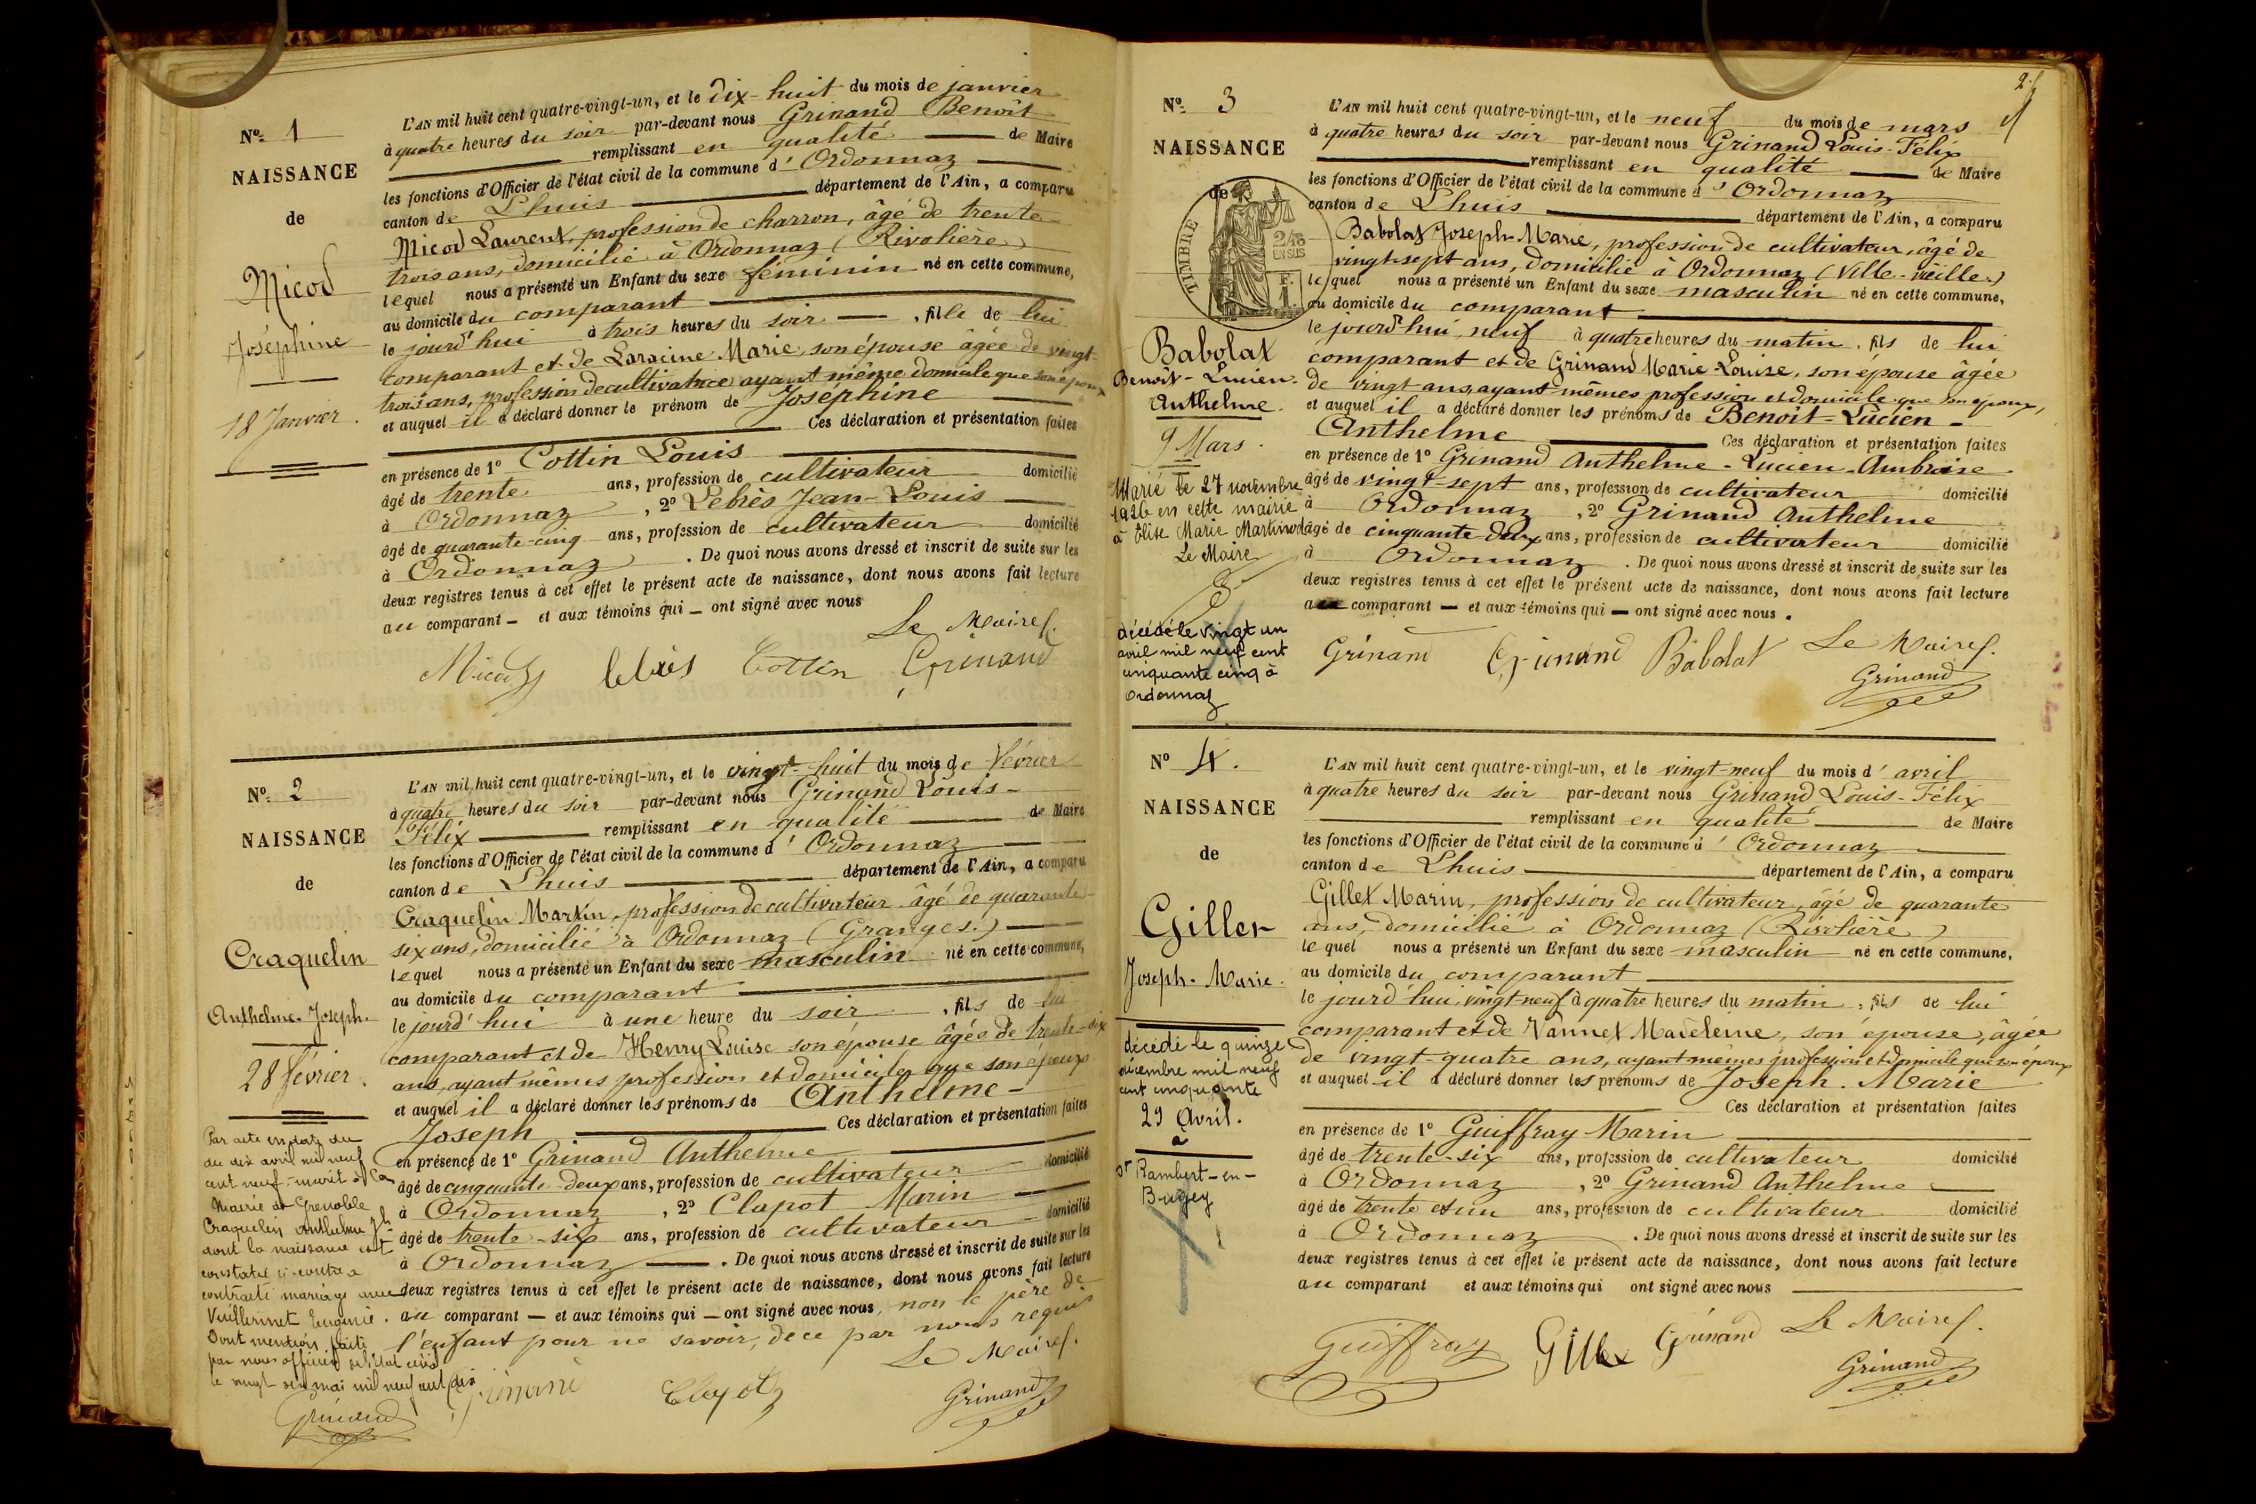 Nº 1
NAISSANCE
de
Micod
Joséphine
18 Janvier.
L'AN mil huit cent quatre-vingt-un, et le dix-huit du mois de janvier
à quatre heures du soir par-devant nous Grinand Benoît
remplissant en qualité de Maire
les fonctions d'Officier de l'état civil de la commune d'Ordonnaz
canton de Lhuis département de l'Ain, a comparu
Micod Laurent, profession de charron, âgé de trente
trois ans, domicilié à Ordonnaz (Rivolière)
lequel nous a présenté un Enfant du sexe féminin né en cette commune,
au domicile du comparant
le jourd'hui à trois heures du soir, fille de lui
comparant et de Laracine Marie, son épouse âgée de vingt-
trois ans, profession de cultivatrice ayant même domicile que son époux
et auquel il a déclaré donner le prénom de Joséphine
Ces déclaration et présentation faites
en présence de 1º Cottin Louis
âgé de trente ans, profession de cultivateur domicilié
à Ordonnaz, 2º Lebrès Jean-Louis
âgé de quarante-cinq ans, profession de cultivateur domicilié
à Ordonnaz. De quoi nous avons dressé et inscrit de suite sur les
deux registres tenus à cet effet le présent acte de naissance, dont nous avons fait lecture
au comparant – et aux témoins qui – ont signé avec nous
Le Maire.
Micod Lebrès Cottin Grinand
Nº 2
NAISSANCE
de
Craquelin
Anthelme-Joseph.
28 février.
Par acte en date du
du dix avril mil neuf
cent neuf inscrit à la
Mairie de Grenoble
Craquelin Anthelme Jh
dont la naissance est
constatée ci-contre a
contracté mariage avec
Vuillermet Eugénie.
Dont mention faite
par nous officier de l'état civil
le vingt mai mil neuf cent dix
Grinand
L'AN mil huit cent quatre-vingt-un, et le vingt-huit du mois de Février
à quatre heures du soir par-devant nous Grinand Louis-
Félix remplissant en qualité de Maire
les fonctions d'Officier de l'état civil de la commune d'Ordonnaz
canton de Lhuis département de l'Ain, a comparu
Craquelin Martin, profession de cultivateur âgé de quarante-
six ans, domicilié à Ordonnaz (Granges.)
lequel nous a présenté un Enfant du sexe masculin né en cette commune,
au domicile du comparant
le jourd'hui à une heure du soir, fils de lui
comparant et de Henry Louise son épouse âgée de trente-six
ans, ayant mêmes profession et domicile que son époux
et auquel il a déclaré donner les prénoms de Anthelme-
Joseph Ces déclaration et présentation faites
en présence de 1º Grinand Anthelme
âgé de cinquante-deux ans, profession de cultivateur domicilié
à Ordonnaz, 2º Clapot Marin
âgé de trente-six ans, profession de cultivateur domicilié
à Ordonnaz. De quoi nous avons dressé et inscrit de suite sur les
deux registres tenus à cet effet le présent acte de naissance, dont nous avons fait lecture
au comparant – et aux témoins qui – ont signé avec nous, non le père de
l'enfant pour ne savoir, de ce par nous requis
Le Maire.
Grinand Clapot Grinand
25
Nº 3
NAISSANCE
de
TIMBRE
2/10
EN SUS
F.
1.
Babolat
Benoît-Lucien-
Anthelme.
9 Mars.
Marié le 27 novembre
1926 en cette mairie
à Elise Marie Martinod
Le Maire
décédé le vingt un
avril mil neuf cent
cinquante cinq à
Ordonnaz
L'AN mil huit cent quatre-vingt-un, et le neuf du mois de mars
à quatre heures du soir par-devant nous Grinand Louis-Félix
remplissant en qualité de Maire
les fonctions d'Officier de l'état civil de la commune d'Ordonnaz
canton de Lhuis département de l'Ain, a comparu
Babolat Joseph-Marie, profession de cultivateur, âgé de
vingt-sept ans, domicilié à Ordonnaz (Ville-vieille)
lequel nous a présenté un Enfant du sexe masculin né en cette commune,
au domicile du comparant
le jourd'hui neuf à quatre heures du matin, fils de lui
comparant et de Grinand Marie-Louise, son épouse âgée
de vingt ans, ayant mêmes profession et domicile que son époux,
et auquel il a déclaré donner les prénoms de Benoît-Lucien-
Anthelme Ces déclaration et présentation faites
en présence de 1º Grinand Anthelme-Lucien-Ambroise
âgé de vingt-sept ans, profession de cultivateur domicilié
à Ordonnaz, 2º Grinand Anthelme
âgé de cinquante-deux ans, profession de cultivateur domicilié
à Ordonnaz. De quoi nous avons dressé et inscrit de suite sur les
deux registres tenus à cet effet le présent acte de naissance, dont nous avons fait lecture
au comparant – et aux témoins qui – ont signé avec nous.
Le Maire.
Grinand Grinand Babolat Grinand
Nº 4.
NAISSANCE
de
Gillet
Joseph-Marie.
décédé le quinze
décembre mil neuf
cent cinquante
29 Avril.
à
St Rambert-en-
Bugey
L'AN mil huit cent quatre-vingt-un, et le vingt-neuf du mois d'avril
à quatre heures du soir par-devant nous Grinand Louis-Félix
remplissant en qualité de Maire
les fonctions d'Officier de l'état civil de la commune d'Ordonnaz
canton de Lhuis département de l'Ain, a comparu
Gillet Marin, profession de cultivateur, âgé de quarante
ans, domicilié à Ordonnaz (Rivolière)
lequel nous a présenté un Enfant du sexe masculin né en cette commune,
au domicile du comparant
le jourd'hui vingt-neuf à quatre heures du matin, fils de lui
comparant et de Vannet Madeleine, son épouse, âgée
de vingt-quatre ans, ayant mêmes profession et domicile que son époux
et auquel il a déclaré donner les prénoms de Joseph-Marie
Ces déclaration et présentation faites
en présence de 1º Guiffray Marin
âgé de trente-six ans, profession de cultivateur domicilié
à Ordonnaz, 2º Grinand Anthelme
âgé de trente et un ans, profession de cultivateur domicilié
à Ordonnaz. De quoi nous avons dressé et inscrit de suite sur les
deux registres tenus à cet effet le présent acte de naissance, dont nous avons fait lecture
au comparant et aux témoins qui ont signé avec nous
Le Maire.
Guiffray Gillet Grinand Grinand